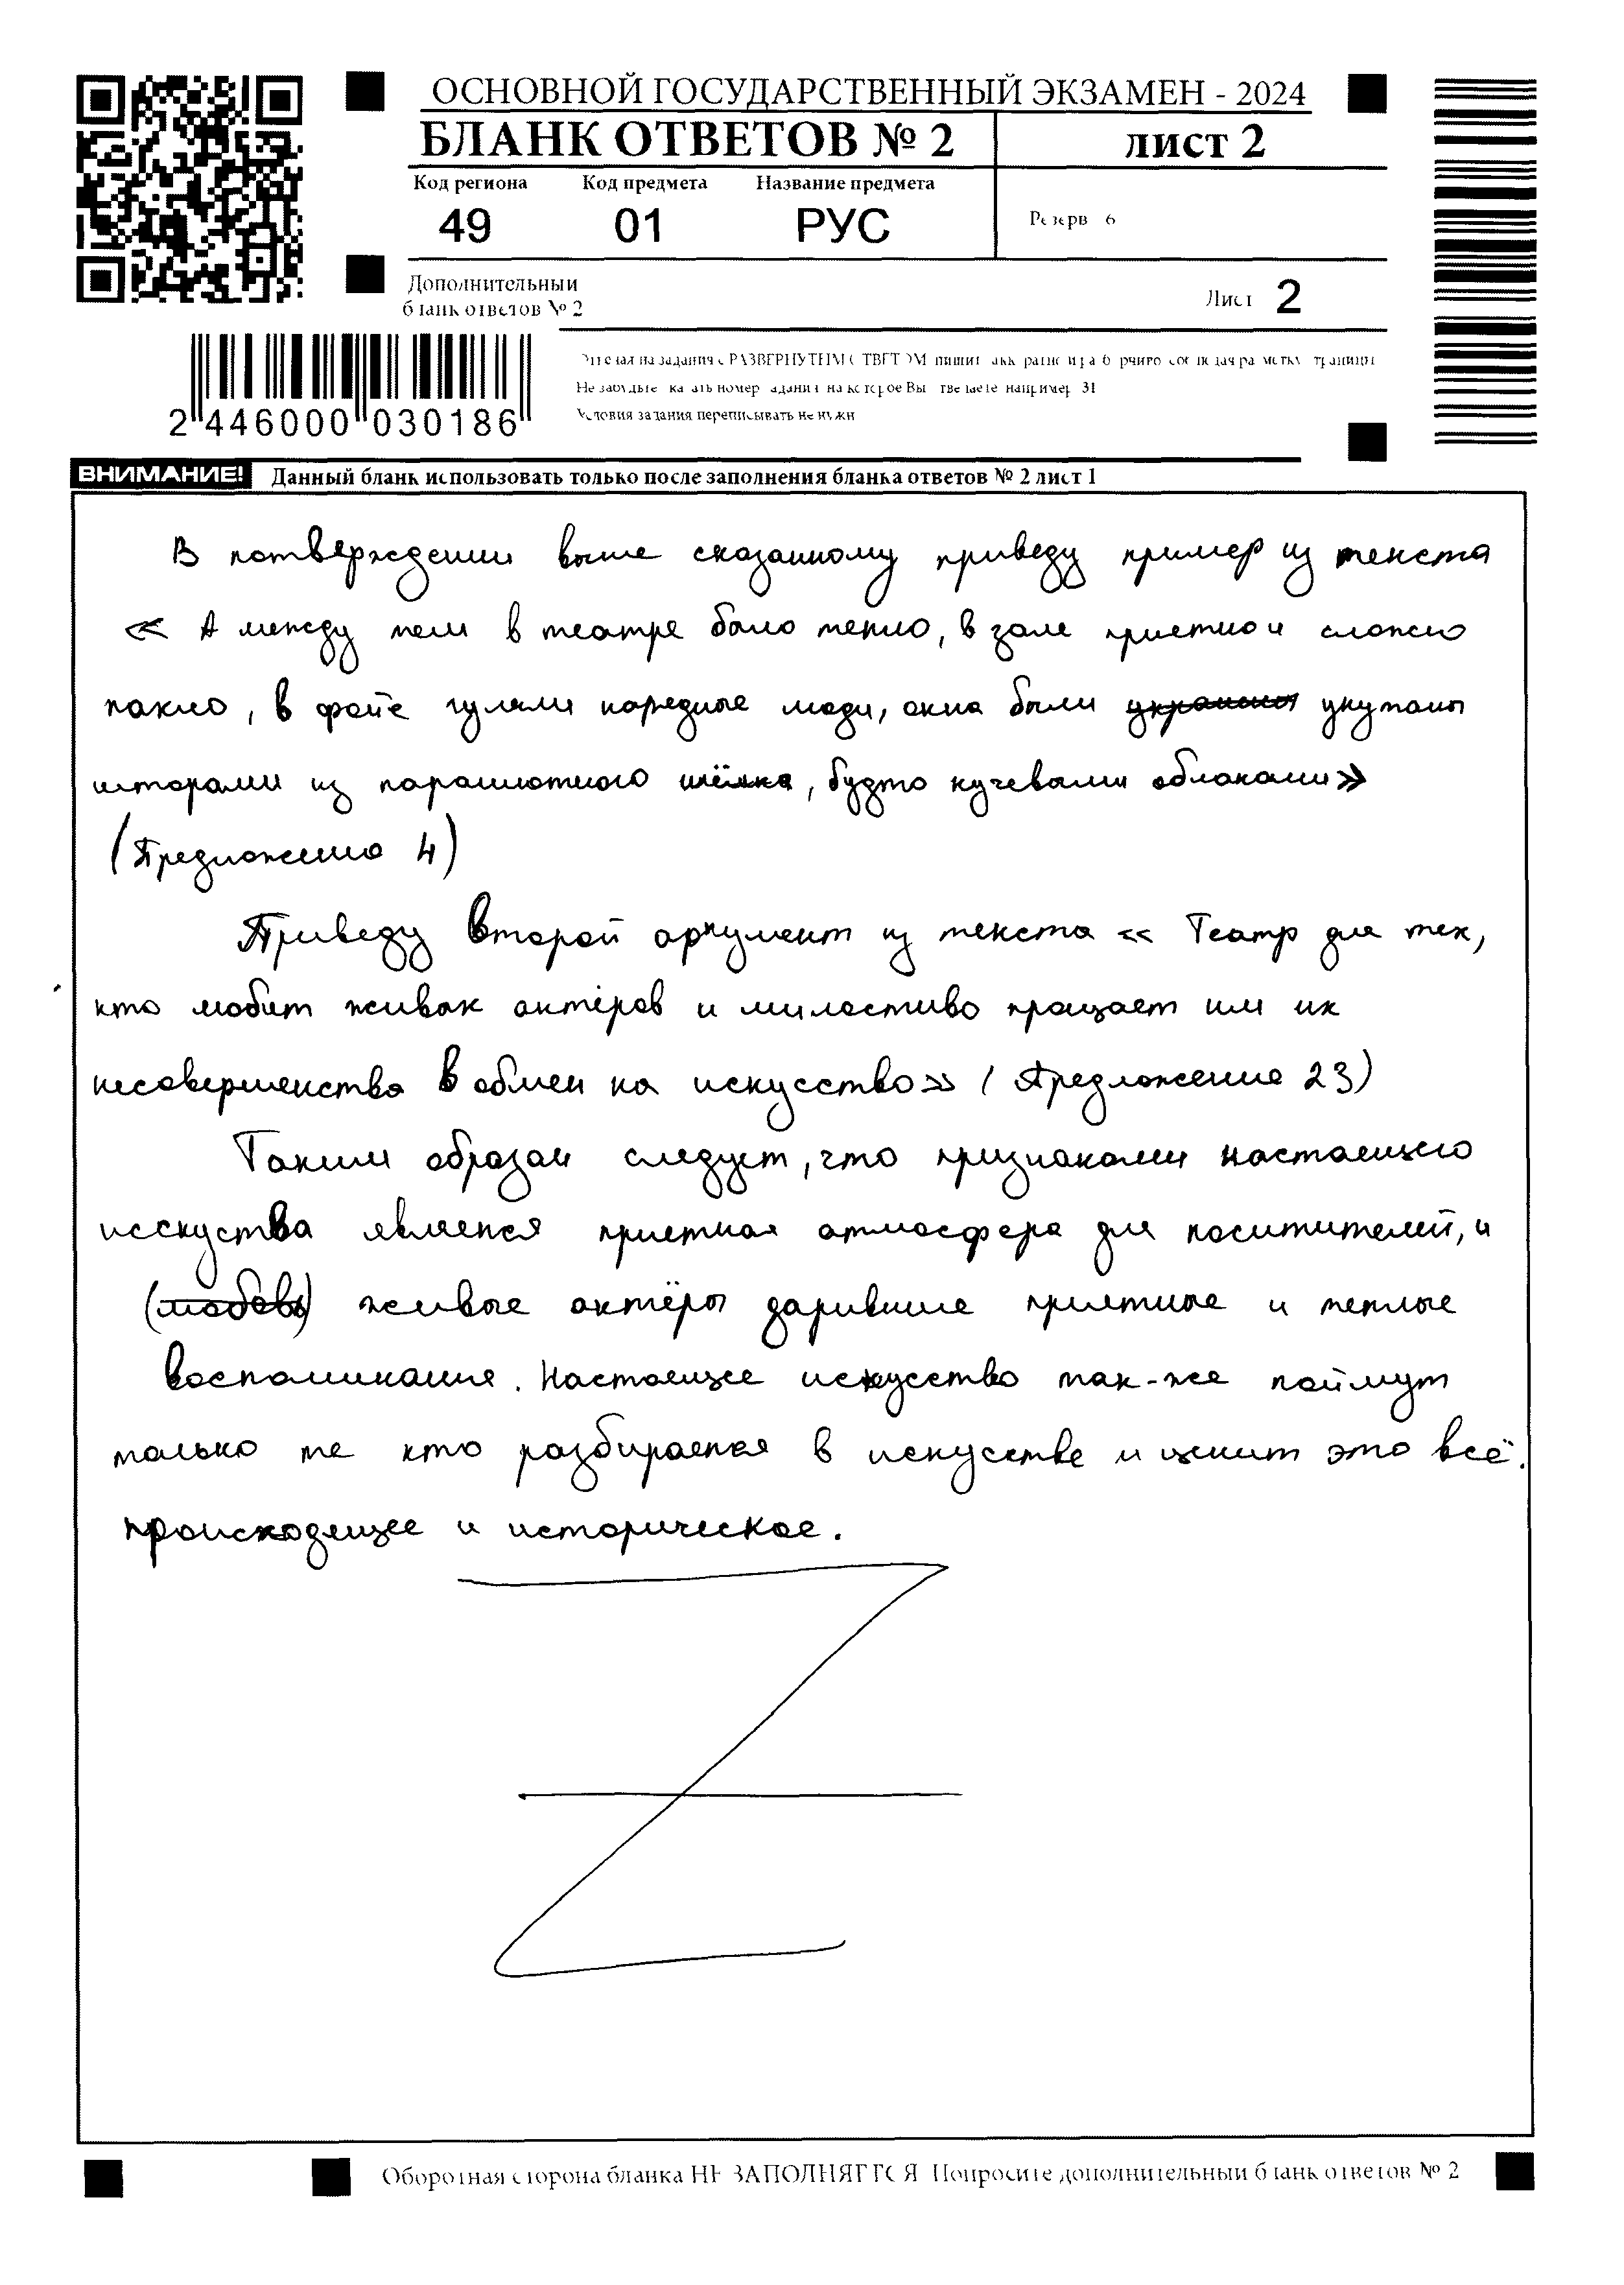 ОСНОВНОЙ ГОСУДАРСТВЕННЫЙ ЭКЗАМЕН - 2024
БЛАНК ОТВЕТОВ № 2
лист 2
Код региона Код предмета Название предмета
49 01 РУС
Резерв 6
Дополнительный
бланк ответов № 2
Лист 2
Не забудьте указать номер задания на которое Вы отвечаете например 31
Условия задания переписывать не нужно
2 446000 030186
ВНИМАНИЕ! Данный бланк использовать только после заполнения бланка ответов № 2 лист 1
В потверждении выше сказанному приведу пример из текста
« А между тем в театре было тепло, в зале приетно и сложно
пахло, в фойе гуляли нарядные люди, окна были укутаны
шторами из парашютного шёлка, будто кучевыми облаками»
(Предложение 4)
Приведу второй аргумент из текста « Театр для тех,
кто любит живых актёров и милостиво пращает им их
несовершенства в обмен на искусство» (Предложение 23)
Таким образом следует, что признаками настоещего
исскуства является приетная атмосфера для поситителей, и
(любовь) живые актёры дарившие приятные и теплые
воспоминания. Настоещее искусство так-же поймут
только те кто разбирается в искусстве и ценит это всё
происходящее и историческое.
Оборотная сторона бланка НЕ ЗАПОЛНЯЕТСЯ Попросите дополнительный бланк ответов № 2